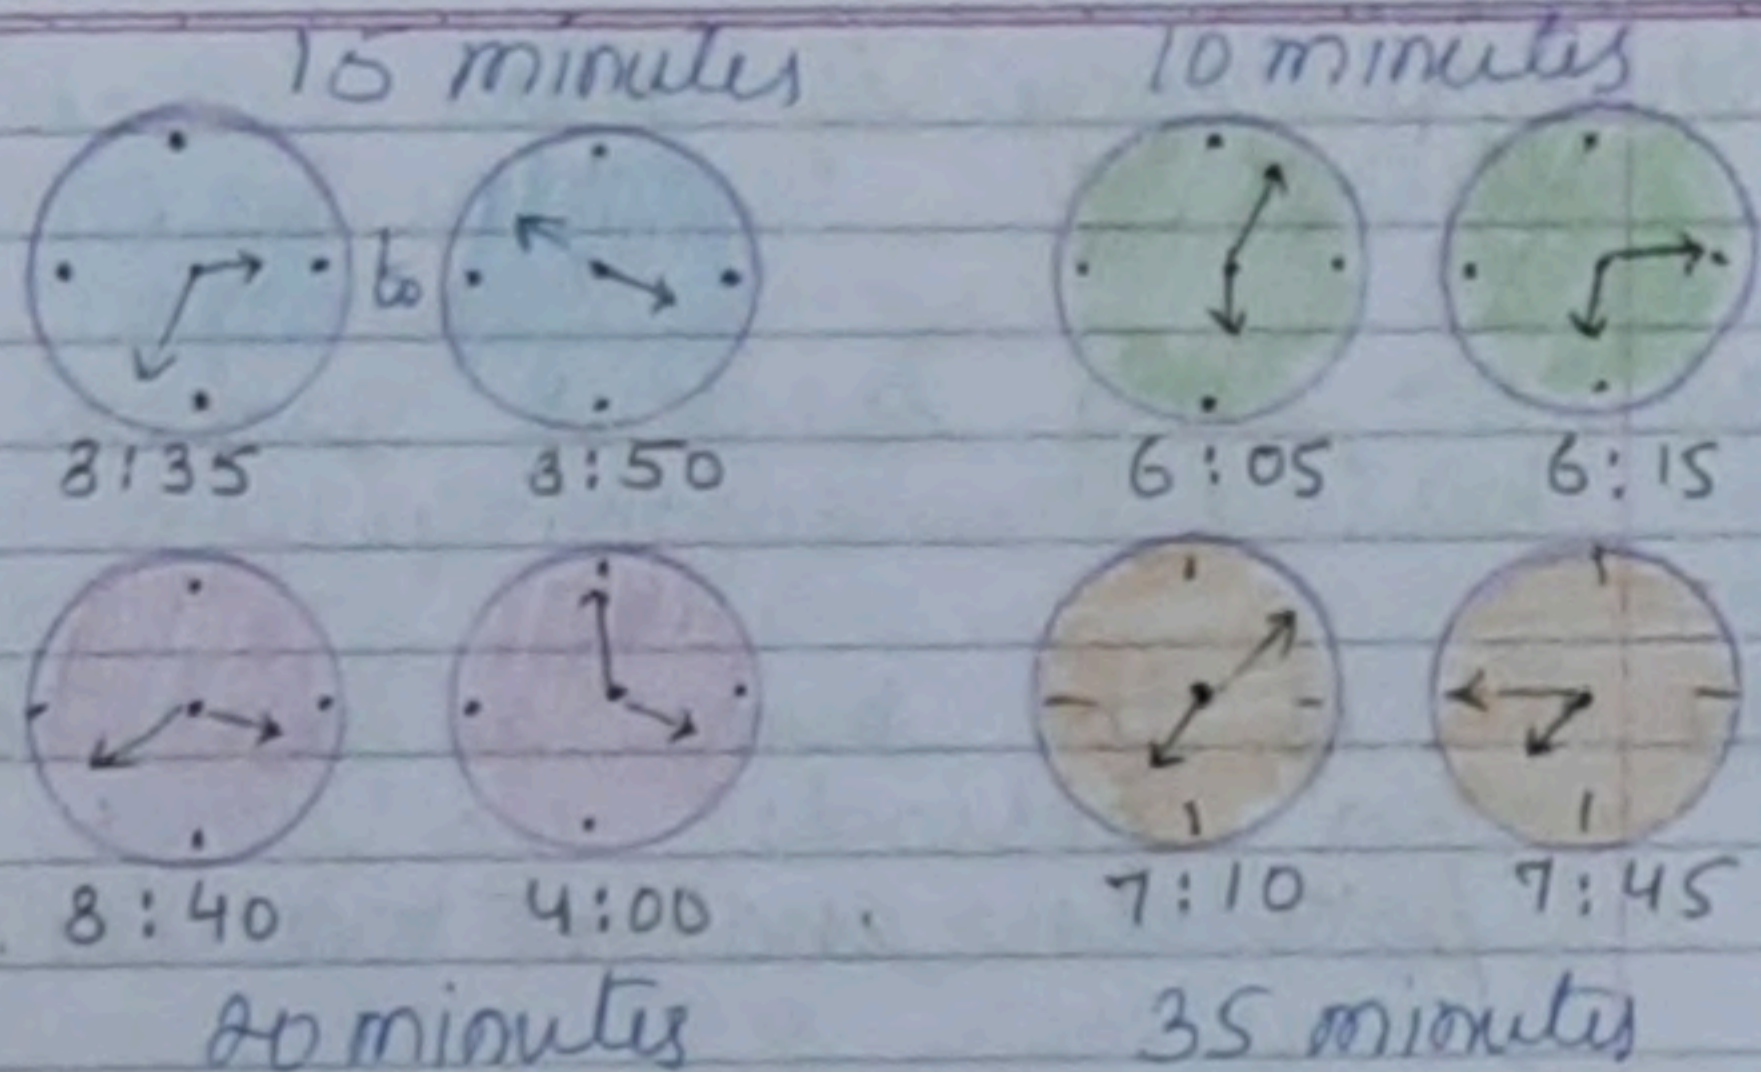 15 minutes 10 minutes
to
3:35 3:50 6:05 6:15
3:40 4:00 7:10 7:45
20 minutes 35 minutes